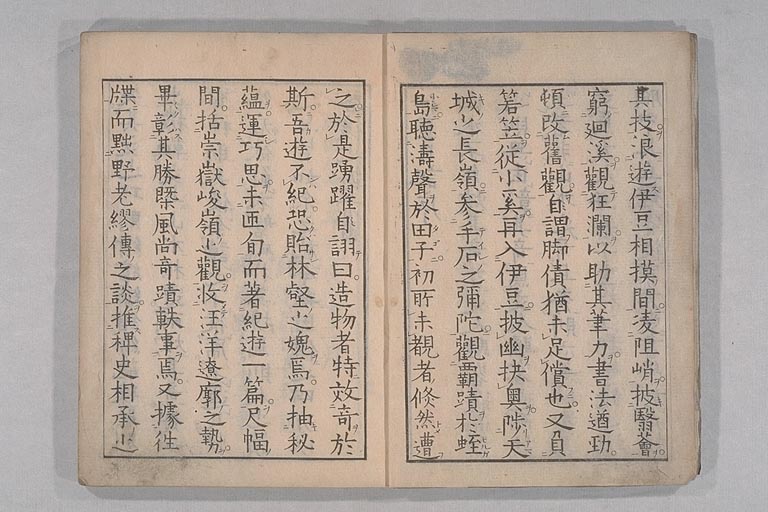 其技浪遊伊豆相摸間凌阻峭披翳薈
窮廻溪觀狂瀾以助其筆力書法遒勁
頓改舊觀自謂脚債猶未足償也又負
笈笠從小奚再入伊豆披幽抉奧陟天
城之長嶺參手石之彌陀觀覇蹟於蛭
島聽濤聲於田子初所未覩者倏然遭
之於是踴躍自詡曰造物者特效奇於
斯吾遊不紀恐貽林壑之媿焉乃抽秘
蘊運巧思未匝旬而著紀遊一篇尺幅
間括崇嶽峻嶺之觀收汪洋遼廓之勢
畢彰其勝槩風尚奇蹟軼事焉又據往
牒而黜野老繆傳之談推稗史相承之